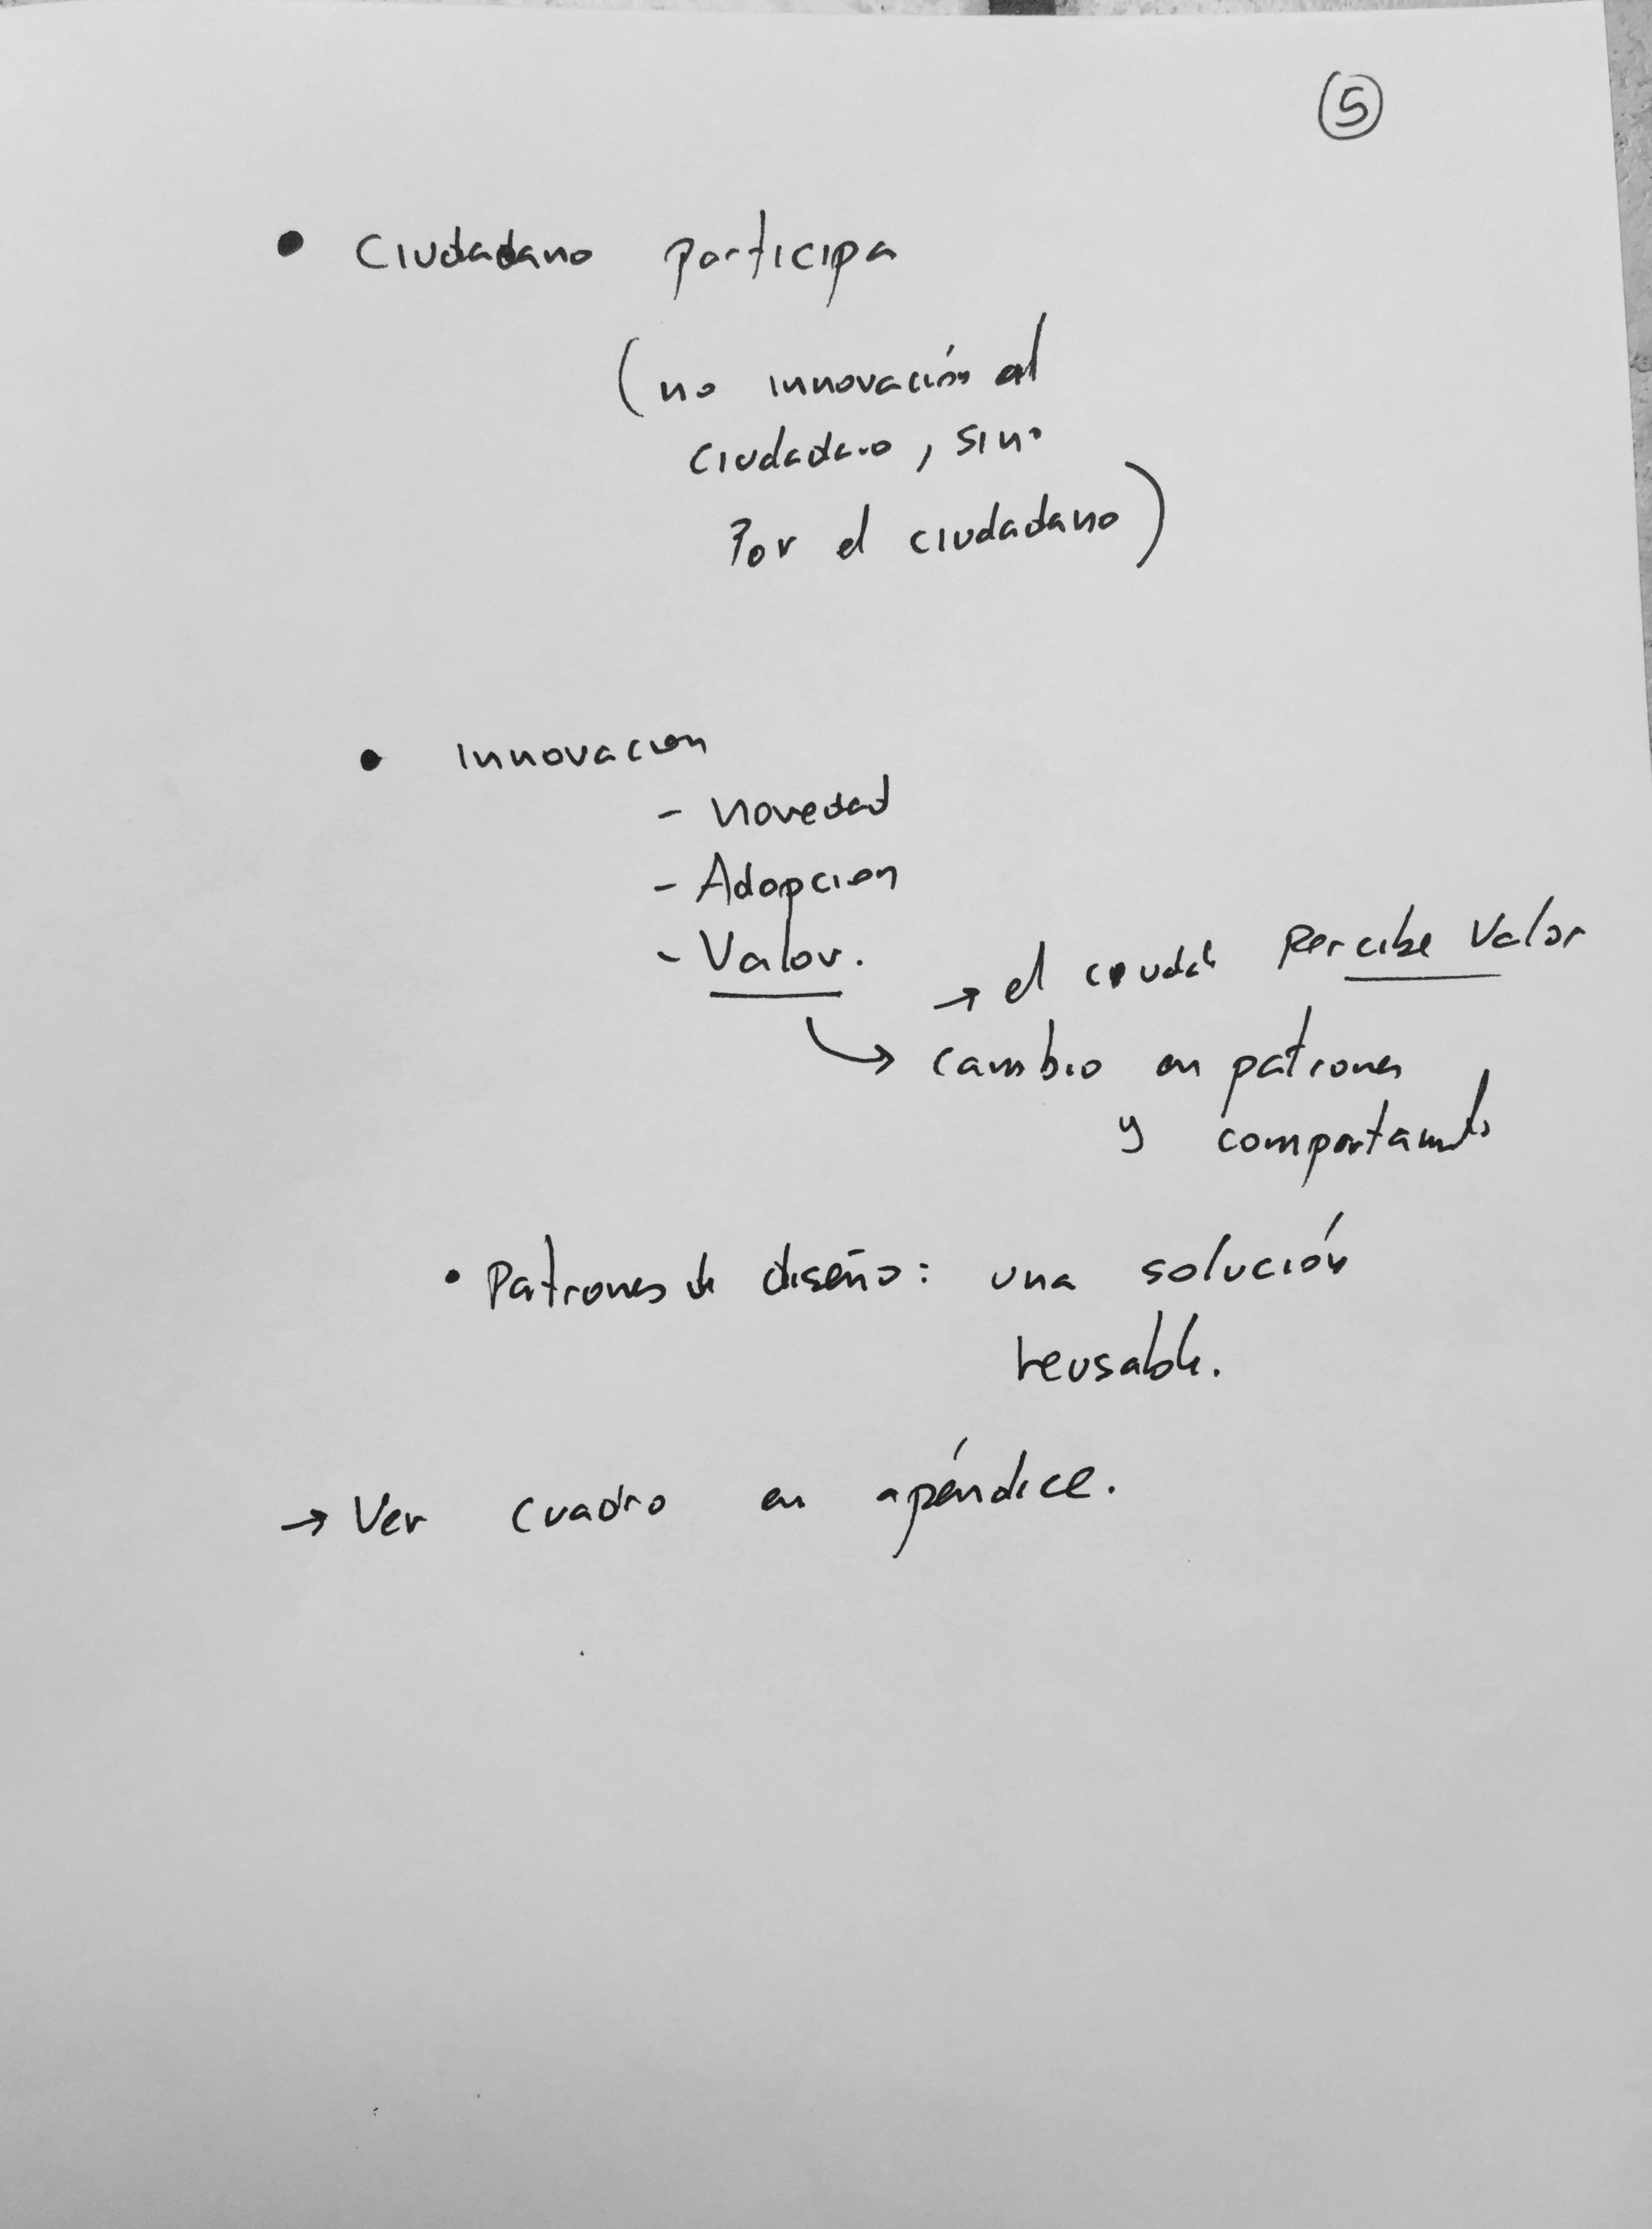 5
• Ciudadano participa
(no innovación al
ciudadano, sino
Por el ciudadano)
• Innovacion
- Novedad
- Adopcion
- Valor.
→ el ciudad percibe Valor
→ cambio en patrones
y comportamto
• Patrones de diseño: una solución
reusable.
→ Ver cuadro en apéndice.